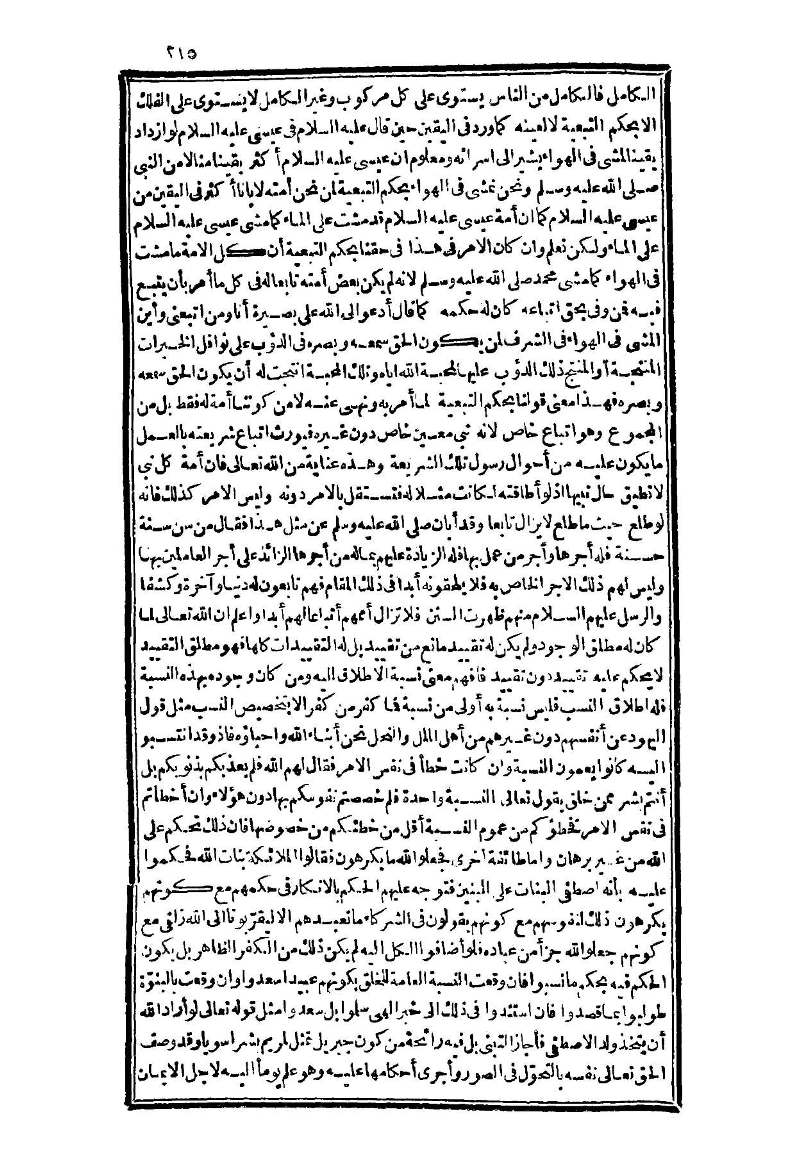 ٢١٥
الكامل فالكامل من الناس يستوى على كل مركوب وغير الكامل لا يستوى على الفلك
الا بحكم التبعية لا لعينه كما ورد فى اليقين حين قال عليه السلام فى عيسى عليه السلام لو ازداد
يقينا لمشى فى الهواء يشير الى اسرائه ومعلوم ان عيسى عليه السلام أكثر يقينا منا لا من النبى
صلى الله عليه وسلم ونحن نمشى فى الهواء بحكم التبعية لمن نحن أمته لا بانا أكثر فى اليقين من
عيسى عليه السلام كما ان أمة عيسى عليه السلام قد مشت على الماء كما مشى عيسى عليه السلام
على الماء ولكن نعلم وان كان الامر فى هذا فى حقنا بحكم التبعية أن كل الامة ما مشت
فى الهواء كما مشى محمد صلى الله عليه وسلم لانه لم يكن بعض أمته تابعا له فى كل ما أمر بأن يتبع
فيه فمن وفى بحق اتباعه كان له حكمه كما قال أدعو الى الله على بصيرة أنا ومن اتبعنى وأين
المشى فى الهواء فى الشرف لمن يكون الحق سمعه وبصره فى الدؤب على نوافل الخيرات
المنتجة أو المنتج ذلك الدؤب عليها لمحبة الله اياه وتلك المحبة انتجت له أن يكون الحق سمعه
وبصره فهذا معنى قولنا بحكم التبعية لما أمر به ونهى عنه لا من كوننا أمة له فقط بل من
المجموع وهو اتباع خاص لانه نبى معين خاص دون غيره فيورث اتباع شريعته بالعمل
ما يكون عليه من أحوال رسول تلك الشريعة وهذه عناية من الله تعالى فان أمة كل نبى
لا تطيق حال نبيها اذ لو أطاقته لكانت مثلا له فتستقل بالامر دونه وليس الامر كذلك فانه
لو طلع حيث ما طلع لا يزال تابعا وقد أبان صلى الله عليه وسلم عن مثل هذا فقال من سن سنة
حسنة فله أجرها وأجر من عمل بها فله الزيادة عليهم بماله من أجرها الزائد على أجر العاملين بها
وليس لهم ذلك الاجر الخاص به فلا يلحقونه أبدا فى ذلك المقام فهم تابعون له دنيا وآخرة وكشفا
والرسل عليهم السلام منهم ظهرت السنن فلا تزال أممهم أتباعا لهم أبدا واعلم ان الله تعالى لما
كان له مطلق الوجود ولم يكن له تقييد مانع من تقييد بل له التقييدات كلها فهو مطلق التقييد
لا يحكم عليه تقييد دون تقييد فافهم معنى نسبة الاطلاق اليه ومن كان وجوده بهذه النسبة
فله اطلاق النسب فليس نسبة به أولى من نسبة فما كفر من كفر الا بتخصيص النسب مثل قول
اليهود عن أنفسهم دون غيرهم من أهل الملل والنحل نحن أبناء الله واحباؤه فاذ وقد انتسبوا
اليه كانوا يعمون النسبة وان كانت خطأ فى نفس الامر فقال لهم الله فلم يعذبكم بذنوبكم بل
أنتم بشر ممن خلق يقول تعالى النسبة واحدة فلم خصصتم نفوسكم بها دون هؤلاء وان أخطأتم
فى نفس الامر فخطؤكم من عموم النسبة أقل من خطئكم من خصوصها فان ذلك تحكم على
الله من غير برهان واما طائفة اخرى فجعلوا لله ما يكرهون فقالوا الملائكة بنات الله فحكموا
عليه بأنه اصطفى البنات على البنين فتوجه عليهم الحكم بالانكار فى حكمهم مع كونهم
يكرهون ذلك لنفوسهم مع كونهم يقولون فى الشركاء ما نعبدهم الا ليقربونا الى الله زلفى مع
كونهم جعلوا لله جزأ من عباده فلو أضافوا الكل اليه لم يكن ذلك من الكفر الظاهر بل يكون
الحكم فيه بحكم ما نسبوا فان وقعت النسبة العامة للخلق بكونهم عبيدا سعدوا وان وقعت بالبنوة
طولبوا بما قصدوا فان استندوا فى ذلك الى خبر الهى سلموا بل سعدوا مثل قوله تعالى لو أراد الله
أن يتخذ ولدا لاصطفى فأجاز التبنى بل فيه رائحة من كون جبريل تمثل لمريم بشرا سويا وقد وصف
الحق تعالى نفسه بالتحول فى الصور وأجرى أحكامها عليه وهو علم يومأ اليه لاجل الايمان